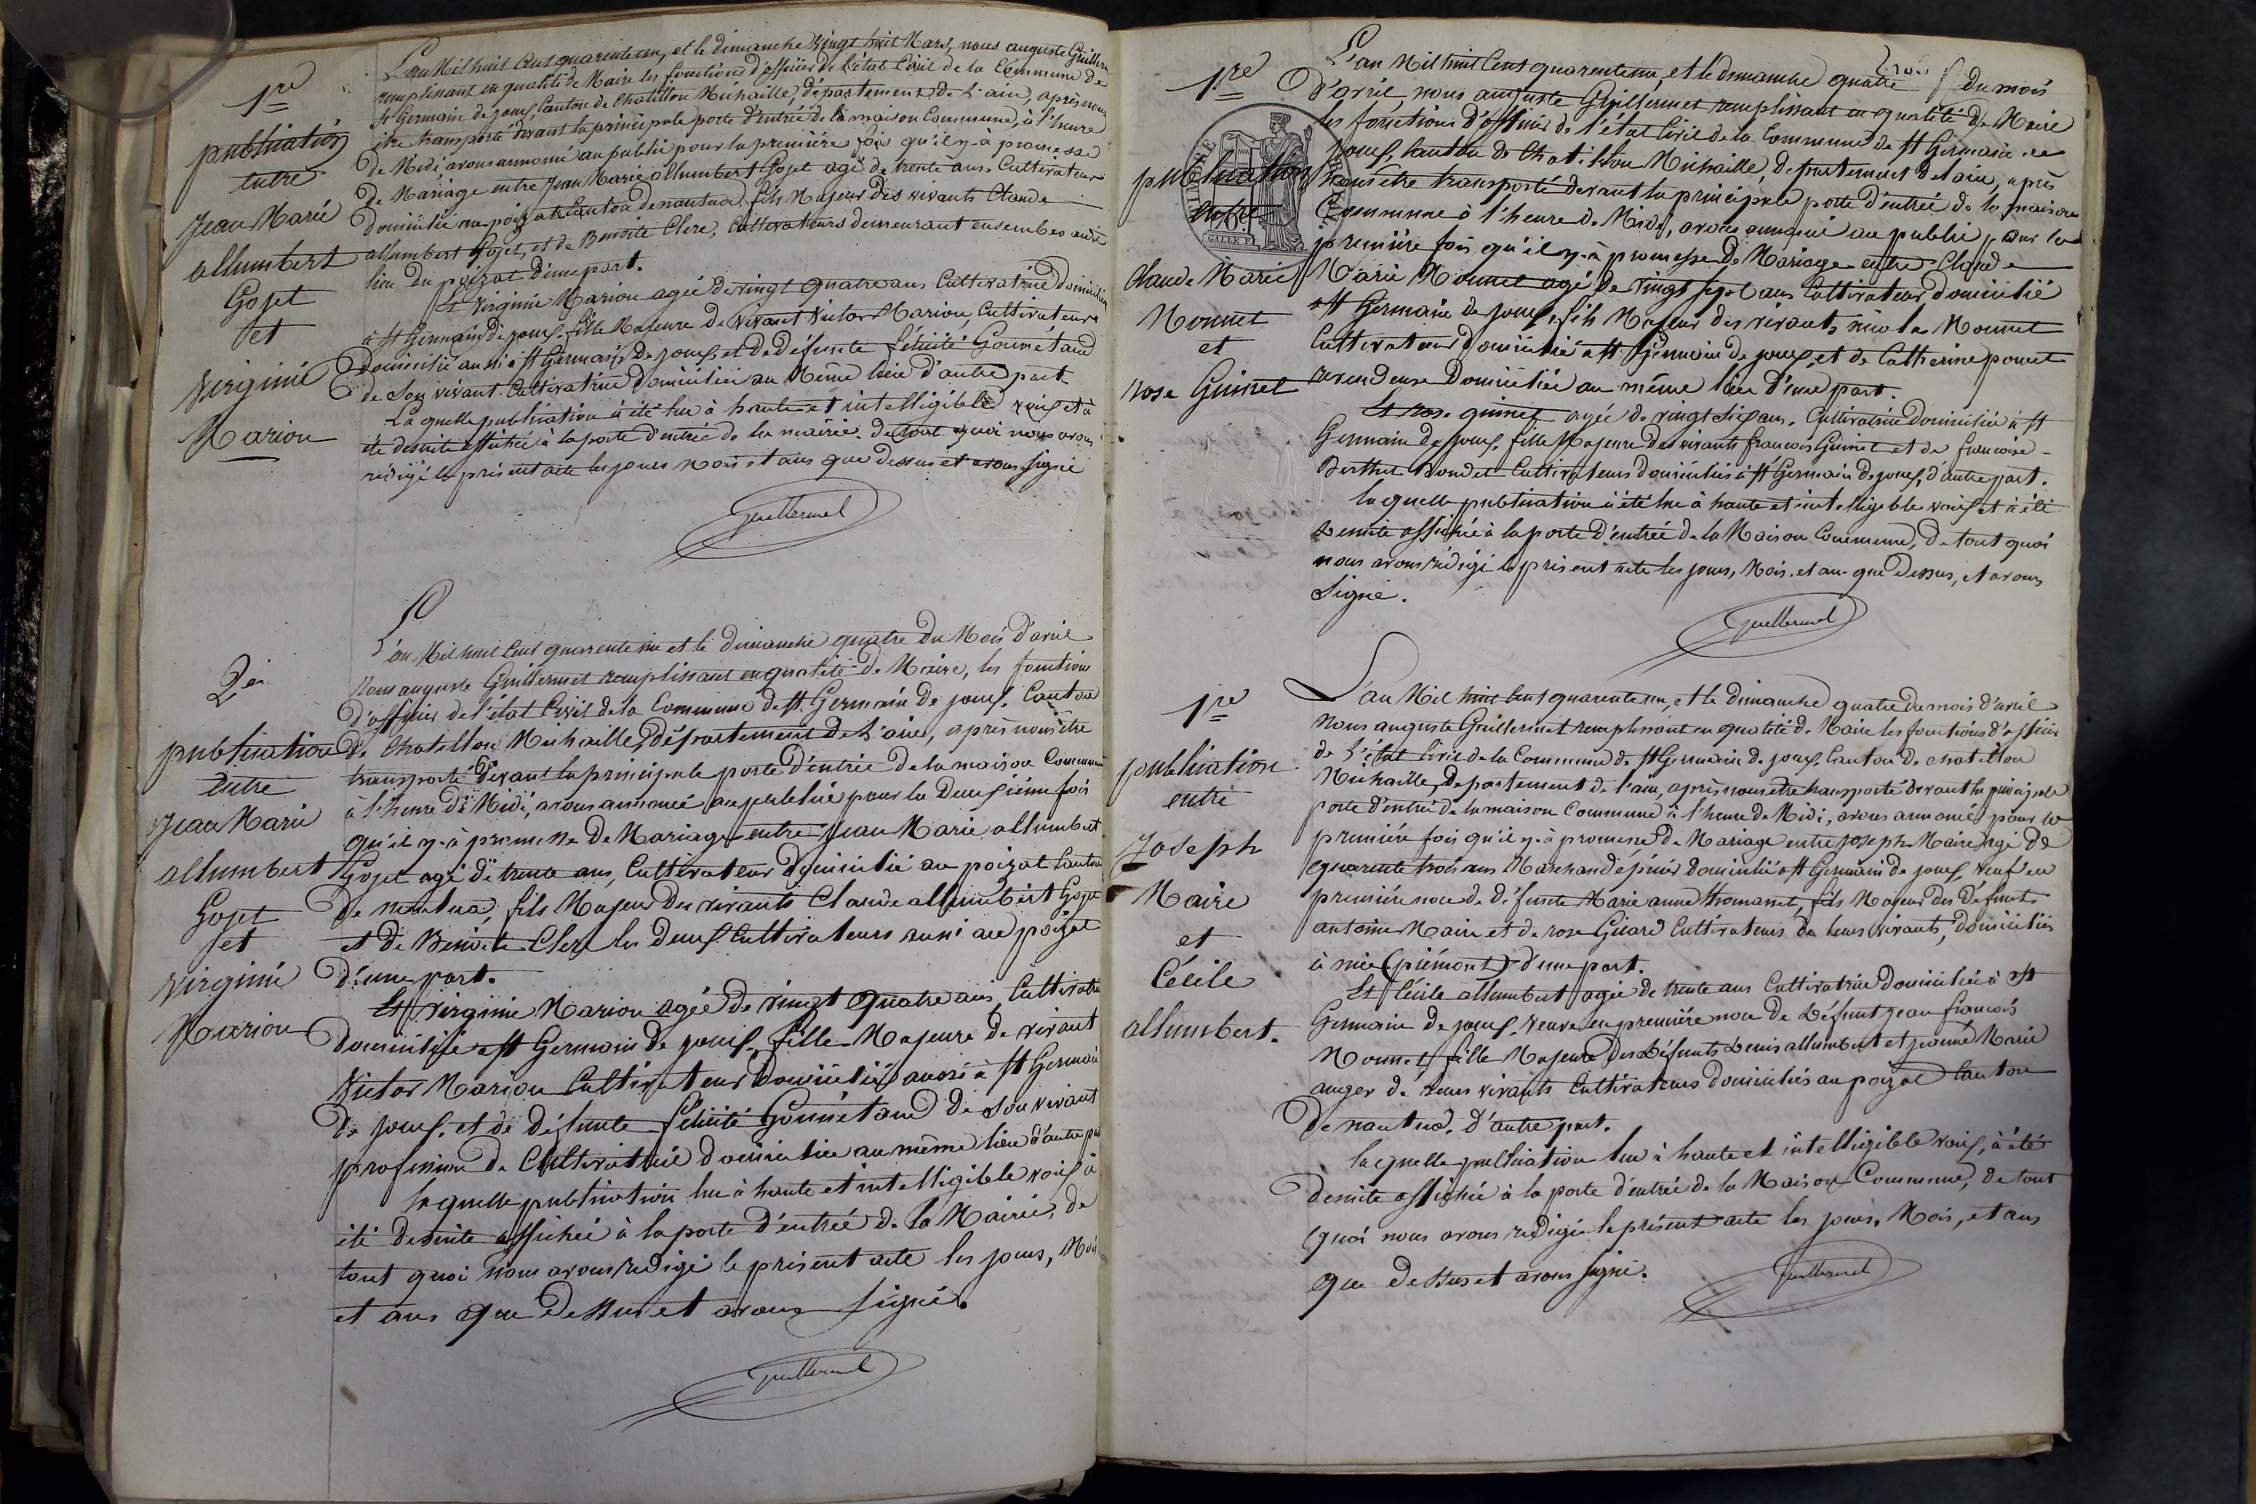 1re
publication
entre
Jean Marie
allumbert
Gojet
et
Virginie
Marion
L'an Mil huit Cent quarente un, et le dimanche Vingt huit Mars, nous auguste Guillermet
remplissant en qualité de Maire les fonctions d'officier de l'état Civil de la Commune de
St Germain de joux, Canton de Chatillon Michaille, département de l'ain, après nous
être transporté devant la principale porte d'entrée de la maison Commune, à l'heure
de Midi, avons annoncé au public pour la première fois qu'il y-à promesse
de Mariage entre Jean Marie allumbert Gojet agé de trente ans Cultivateur
domicilié au poizat Canton de nantua, fils Majeur des vivants Claude
allumbert Gojet, et de Benoite Clerc, Cultivateurs demeurant ensembles audit
lieu du poizat d'une part.
Et Virginie Marion agée de vingt quatre ans Cultivatrice domiciliée
à St Germain de joux, fille Majeure de vivant Victor Marion, Cultivateur
domicilié aussi à St Germain de joux, et de défunte félicité Gounétand
de Son vivant Cultivatrice domiciliée au Même lieu d'autre part
La quelle publication à été lue à haute et intelligible voix et à
été desuite affichée à la porte d'entrée de la mairie. de tout quoi nous avons
rédigé le présent acte les jours mois et ans que dessus et avons signé
Guillermet
2e
publication
Entre
Jean Marie
allumbert
Gojet
et
Virginie
Marion
L'an Mil huit Cent quarente un et le dimanche quatre du Mois d'avril
Nous auguste Guillermet remplissant en qualité de Maire, les fonctions
d'officier de l'état Civil de la Commune de St Germain de joux, Canton
de Chatillon Michaille, département de l'ain, après nous être
transporté devant la principale porte d'entrée de la maison Commune
à l'heure de Midi, avons annoncé au public pour la Deuxième fois
qu'il y-à promesse de Mariage entre Jean Marie allumbert
Gojet agé de trente ans, Cultivateur domicilié au poizat Canton
de nantua, fils Majeur des vivants Claude allumbert Gojet
et de Benoite Clerc les deux Cultivateurs aussi au poizat
d'une part.
Et Virginie Marion agée de vingt quatre ans, Cultivatrice
domiciliée à St Germain de joux, fille Majeure de vivant
Victor Marion Cultivateur domicilié aussi à St Germain
de joux, et de défunte félicité Gounétand de Son vivant
profession de Cultivatrice domiciliée au même lieu d'autre part
laquelle publication lue à haute et intelligible voix à
été desuite affichée à la porte d'entrée de la Mairie, de
tout quoi nous avons redigé le présent acte les jours, Mois
et ans que dessus et avons signé.
Guillermet
1re
publication
entre
Claude Marie
Monnet
et
rose Guinet
L'an Mil huit Cent quarente un, et le dimanche quatre du mois
D'avril, nous auguste Guillermet remplissant en qualité de Maire
les fonctions d'officier de l'état Civil de la Commune de St Germain de
joux, Canton de Chatillon Michaille, Département de l'ain, après
nous être transporté devant la principale porte d'entrée de la maison
Commune à l'heure de Midi, avons annoncé au public pour la
première fois qu'il y-à promesse de Mariage entre Claude
Marie Monnet agé de vingt sept ans Cultivateur domicilié
à St Germain de joux, fils Majeur des vivants Monnet
Cultivateur domicilié à St Germain de joux, et de Catherine
revendeuse domiciliée au même lieu d'une part.
Et rose guinet agée de vingt six ans, Cultivatrice domiciliée à St
Germain de joux, fille Majeure des vivants françois Guinet et de françoise
Berthet Cultivateurs domiciliés à St Germain de joux, d'autre part.
la quelle publication à été lue à haute et intelligible voix et à été
desuite affichée à la porte d'entrée de la Maison Commune, de tout quoi
nous avons rédigé le présent acte les jours, Mois, et an que dessus, et avons
Signé.
Guillermet
1re
publication
entre
Joseph
Maire
et
Cécile
allumbert.
L'an Mil huit Cent quarente un, et le dimanche quatre du mois d'avril
Nous auguste Guillermet remplissant en qualité de Maire les fonctions d'officier
de l'état Civil de la Commune de St Germain de joux, Canton de Chatillon
Michaille, Département de l'ain, après nous être transporté devant la principale
porte d'entrée de la maison Commune à l'heure de Midi, avons annoncé pour la
première fois qu'il y-à promesse de Mariage entre Joseph Maire agé de
quarente trois ans Marchand épicier domicilié à St Germain de joux, Veuf en
première noce de défunte Marie anne thomasset, fils Majeur des Défunts
antoine Maire et de rose Girard Cultivateurs de leurs vivants, domiciliés
à nice (piémont) d'une part.
Et Cécile allumbert agée de trente ans Cultivatrice domiciliée à St
Germain de joux, veuve en première noce de Défunt jean françois
Monnet, fille Majeure des Défunts denis allumbert et jeanne Marie
auger de leurs vivants Cultivateurs domiciliés au poizat Canton
de nantua. d'autre part.
la quelle publication lue à haute et intelligible voix, à été
desuite affichée à la porte d'entrée de la Maison Commune, de tout
quoi nous avons redigé le présent acte les jours, Mois, et ans
que dessus et avons signé.
Guillermet